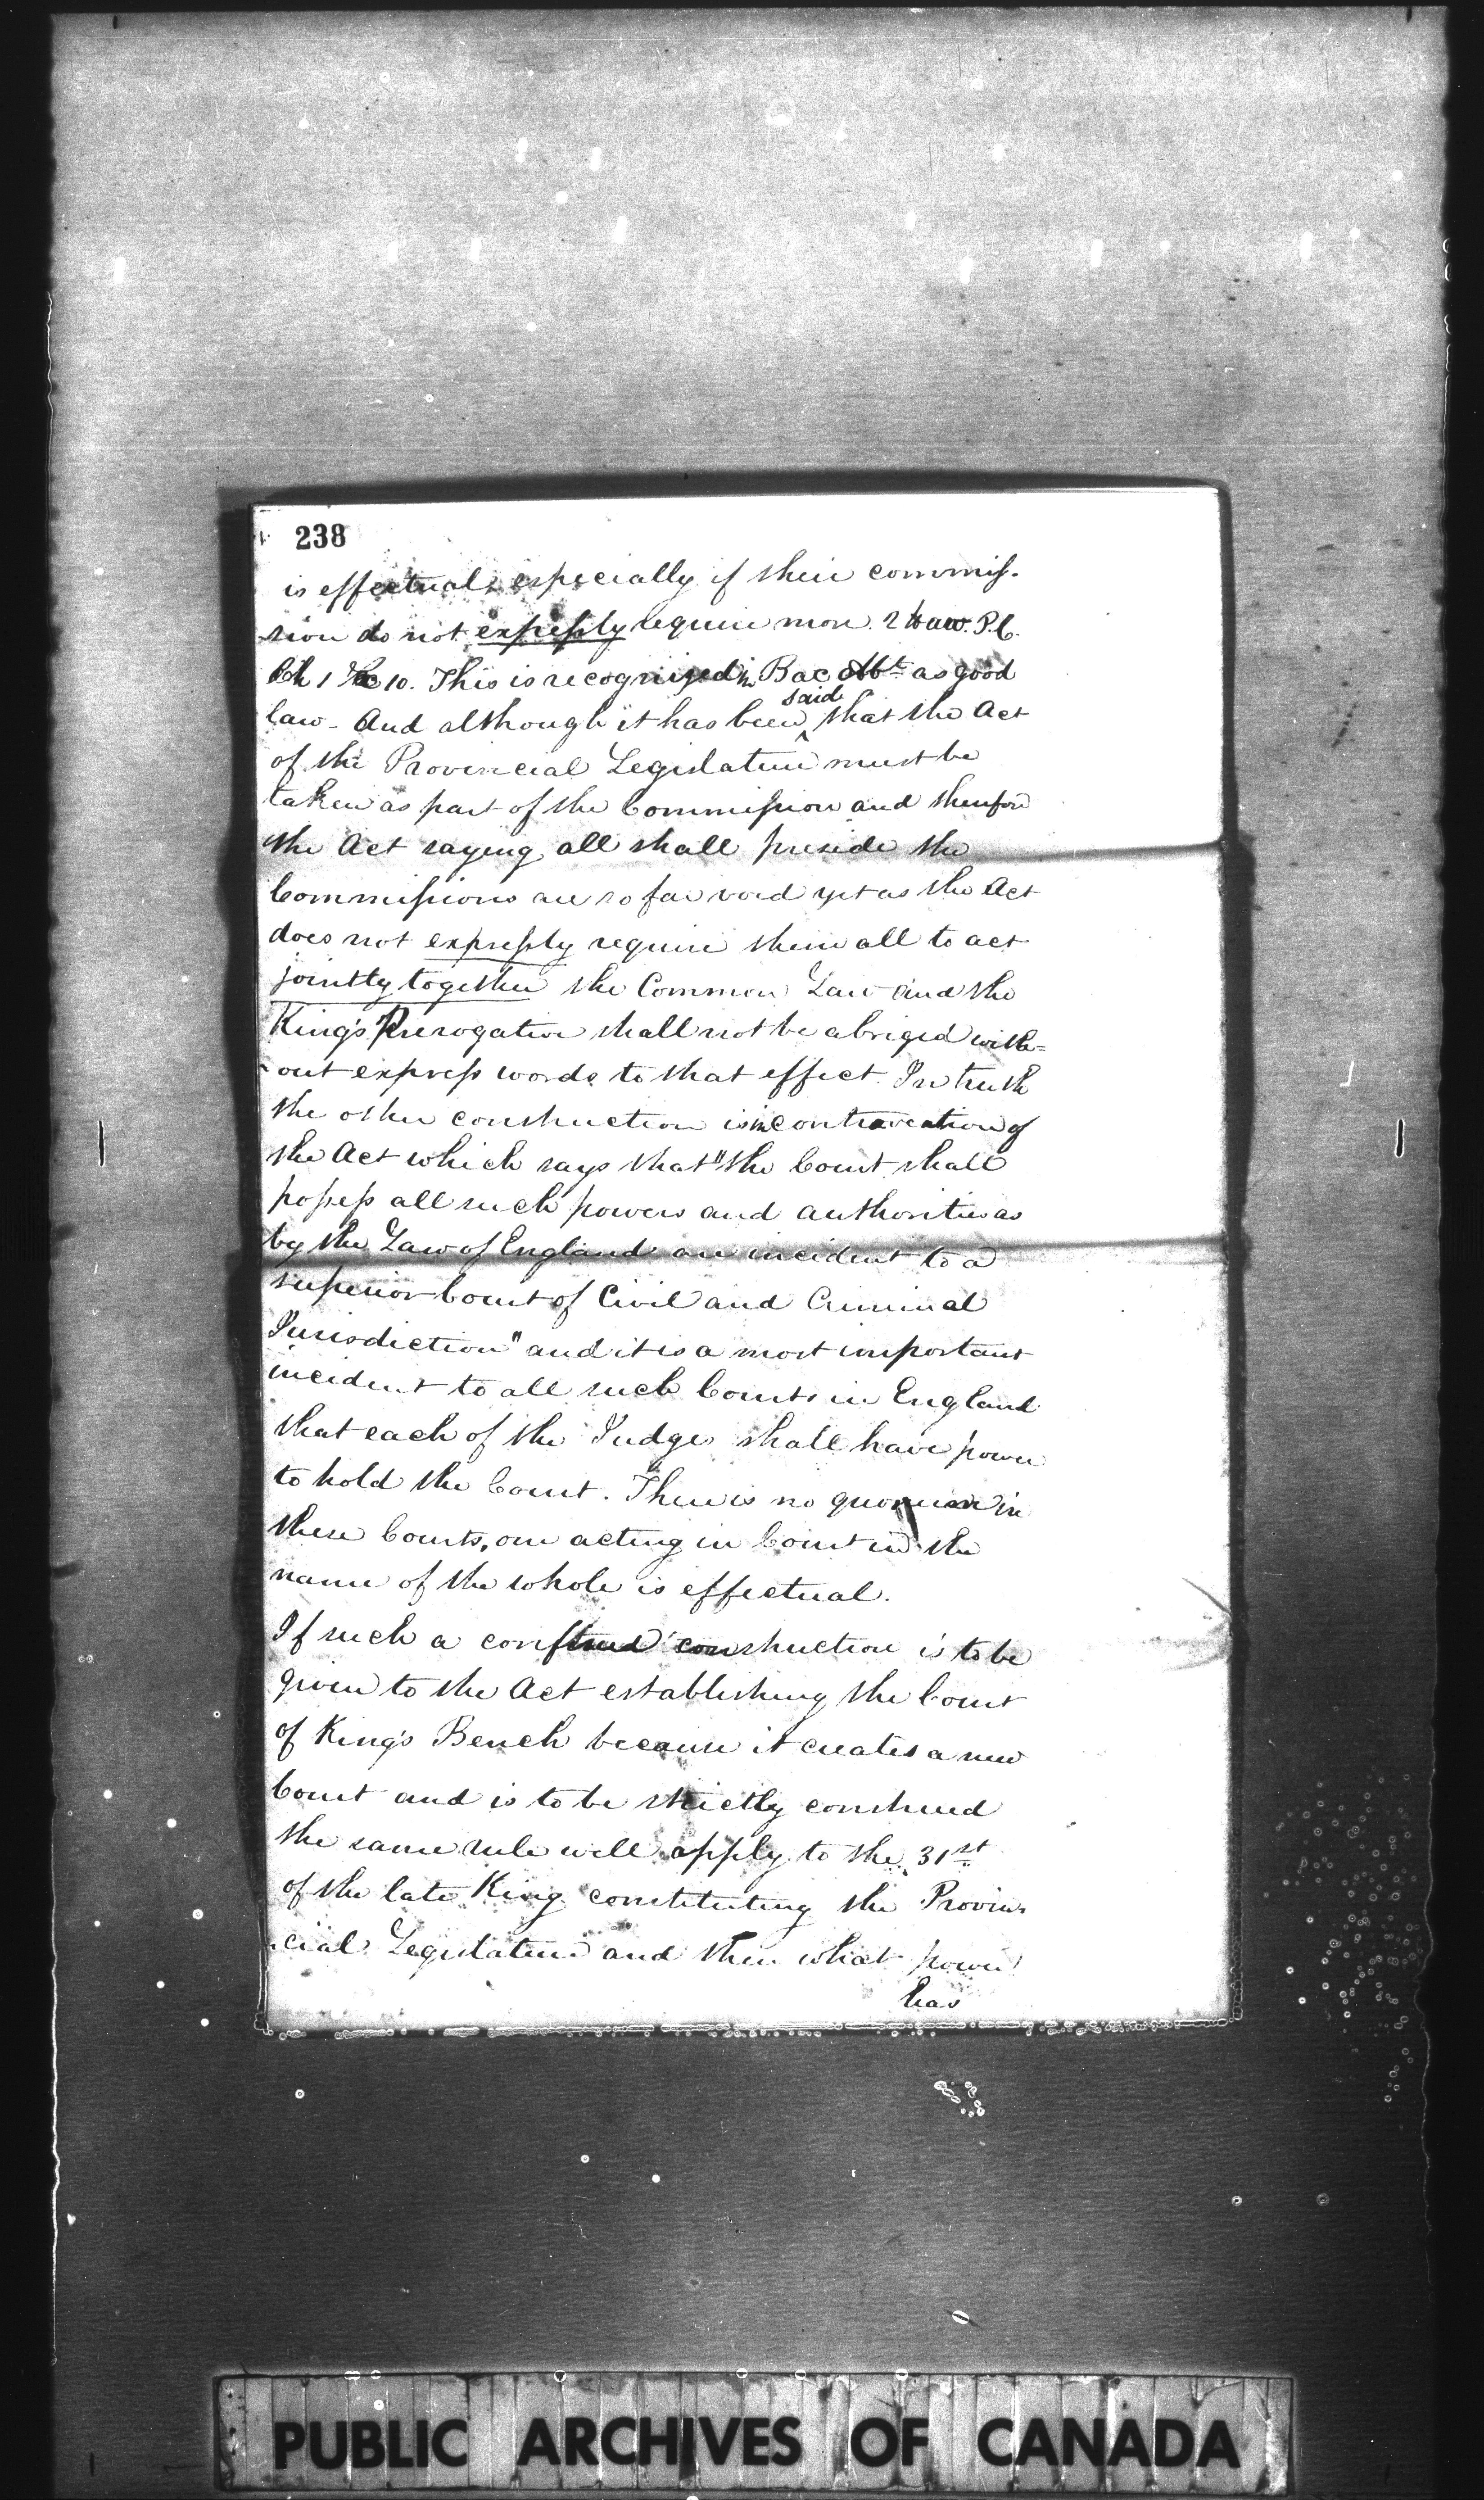 238
is effectual, especially if their commis-
sion do not expressly require more. 2 Haw. P.C.
Ch 1 Sec 10. This is recognized in Bac Abt as good
law - And although it has been said that the Act
of the Provincial Legislature must be
taken as part of the Commission and therefore
the Act saying all shall preside the
Commissions are so far void yet as the Act
does not expressly require them all to act
jointly together the Common Law and the
King's Prerogative shall not be abriged with=
-out express words to that effect. In truth
the other construction is in contravention of
the Act which says that "the Court shall
possess all such powers and authorities as
by the Law of England are incident to a
superior Court of Civil and Criminal
Jurisdiction" and it is a most important
incident to all such Courts in England
that each of the Judges shall have power
to hold the Court. There is no quorum in
these Courts, one acting in Court in the
name of the whole is effectual.
If such a construction is to be
given to the Act establishing the Court
of King's Bench because it creates a new
Court and is to be strictly construed
the same rule will apply to the 31st
of the late King constituting the Provin-
cial Legislature and then what power
has
PUBLIC ARCHIVES OF CANADA